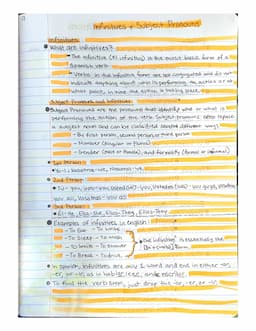 Infinitives + Subject Pronouns
Infinitives
What are infinitives?
- The infinitive (el infinitivo) is the most basic form of a
Spanish verb
- Verbs in the infinitive form are not conjugated and do not
indicate anything about who is performing the action or at
what point in time the action is taking place
Subject Pronouns and Infinitives
Subject Pronouns are the pronouns that identify what or who is
performing the action of the verb. Subject pronouns often replace
a subject noun and can be classified several different ways:
- To first person, second person or third person
- Number (singular or plural)
- Gender (male or female), and formality (formal or informal)
1st person:
Yo - I, Nosotros - we, Nosotras - we
2nd Person
Tú - you,
you all, Vosotras - you all
3rd Person:
Él - He, Ella - She, Ellos - They, Ellas - They
Examples of infinitives in English
- To Eat - To Write
- To Sleep - To Wash
- To Walk - To Answer
- To Break - To Drive
The infinitive is essentially the
(to + (verb)) form.
In Spanish, infinitives are only 1 word and end in either -ar,
-er, or -ir, as in hablar, leer, and escribir.
To find the verb stem, just drop the -ar, -er, or -ir.